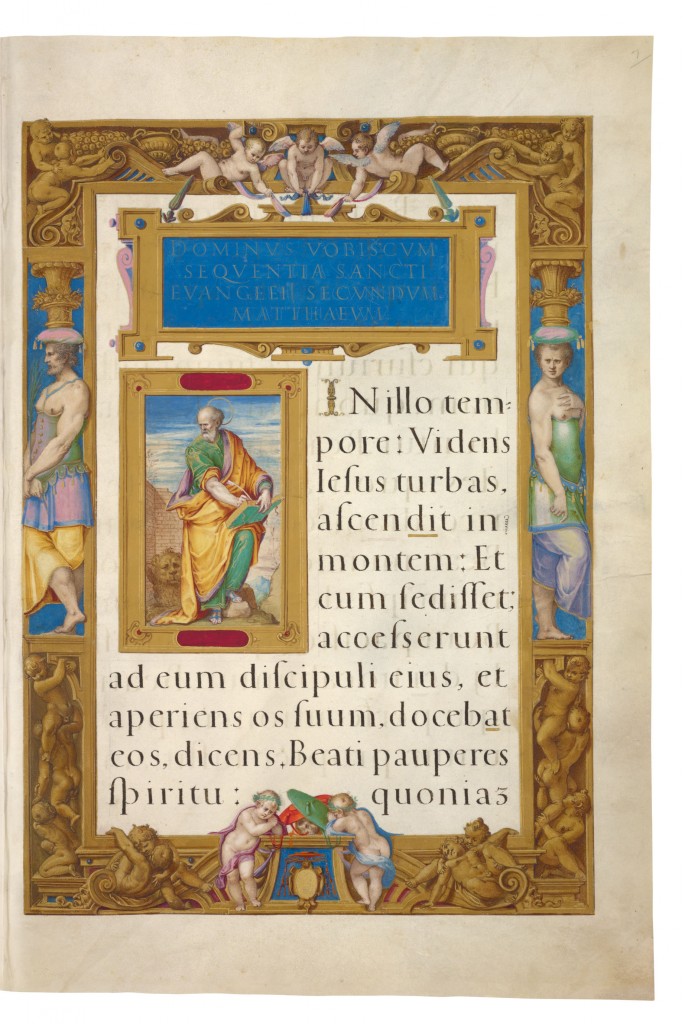 DOMINVS VOBISCVM
SEQVENTIA SANCTI
EVANGELII SECVNDVM
MATTHAEVM
IN illo tem=
pore: Videns
Iesus turbas,
aſcendit in
montem: Et
cum ſediſſet;
acceſserunt
ad eum diſcipuli eius, et
aperiens os ſuum, docebat
eos, dicens: Beati pauperes
ſpiritu: quoniaȝ